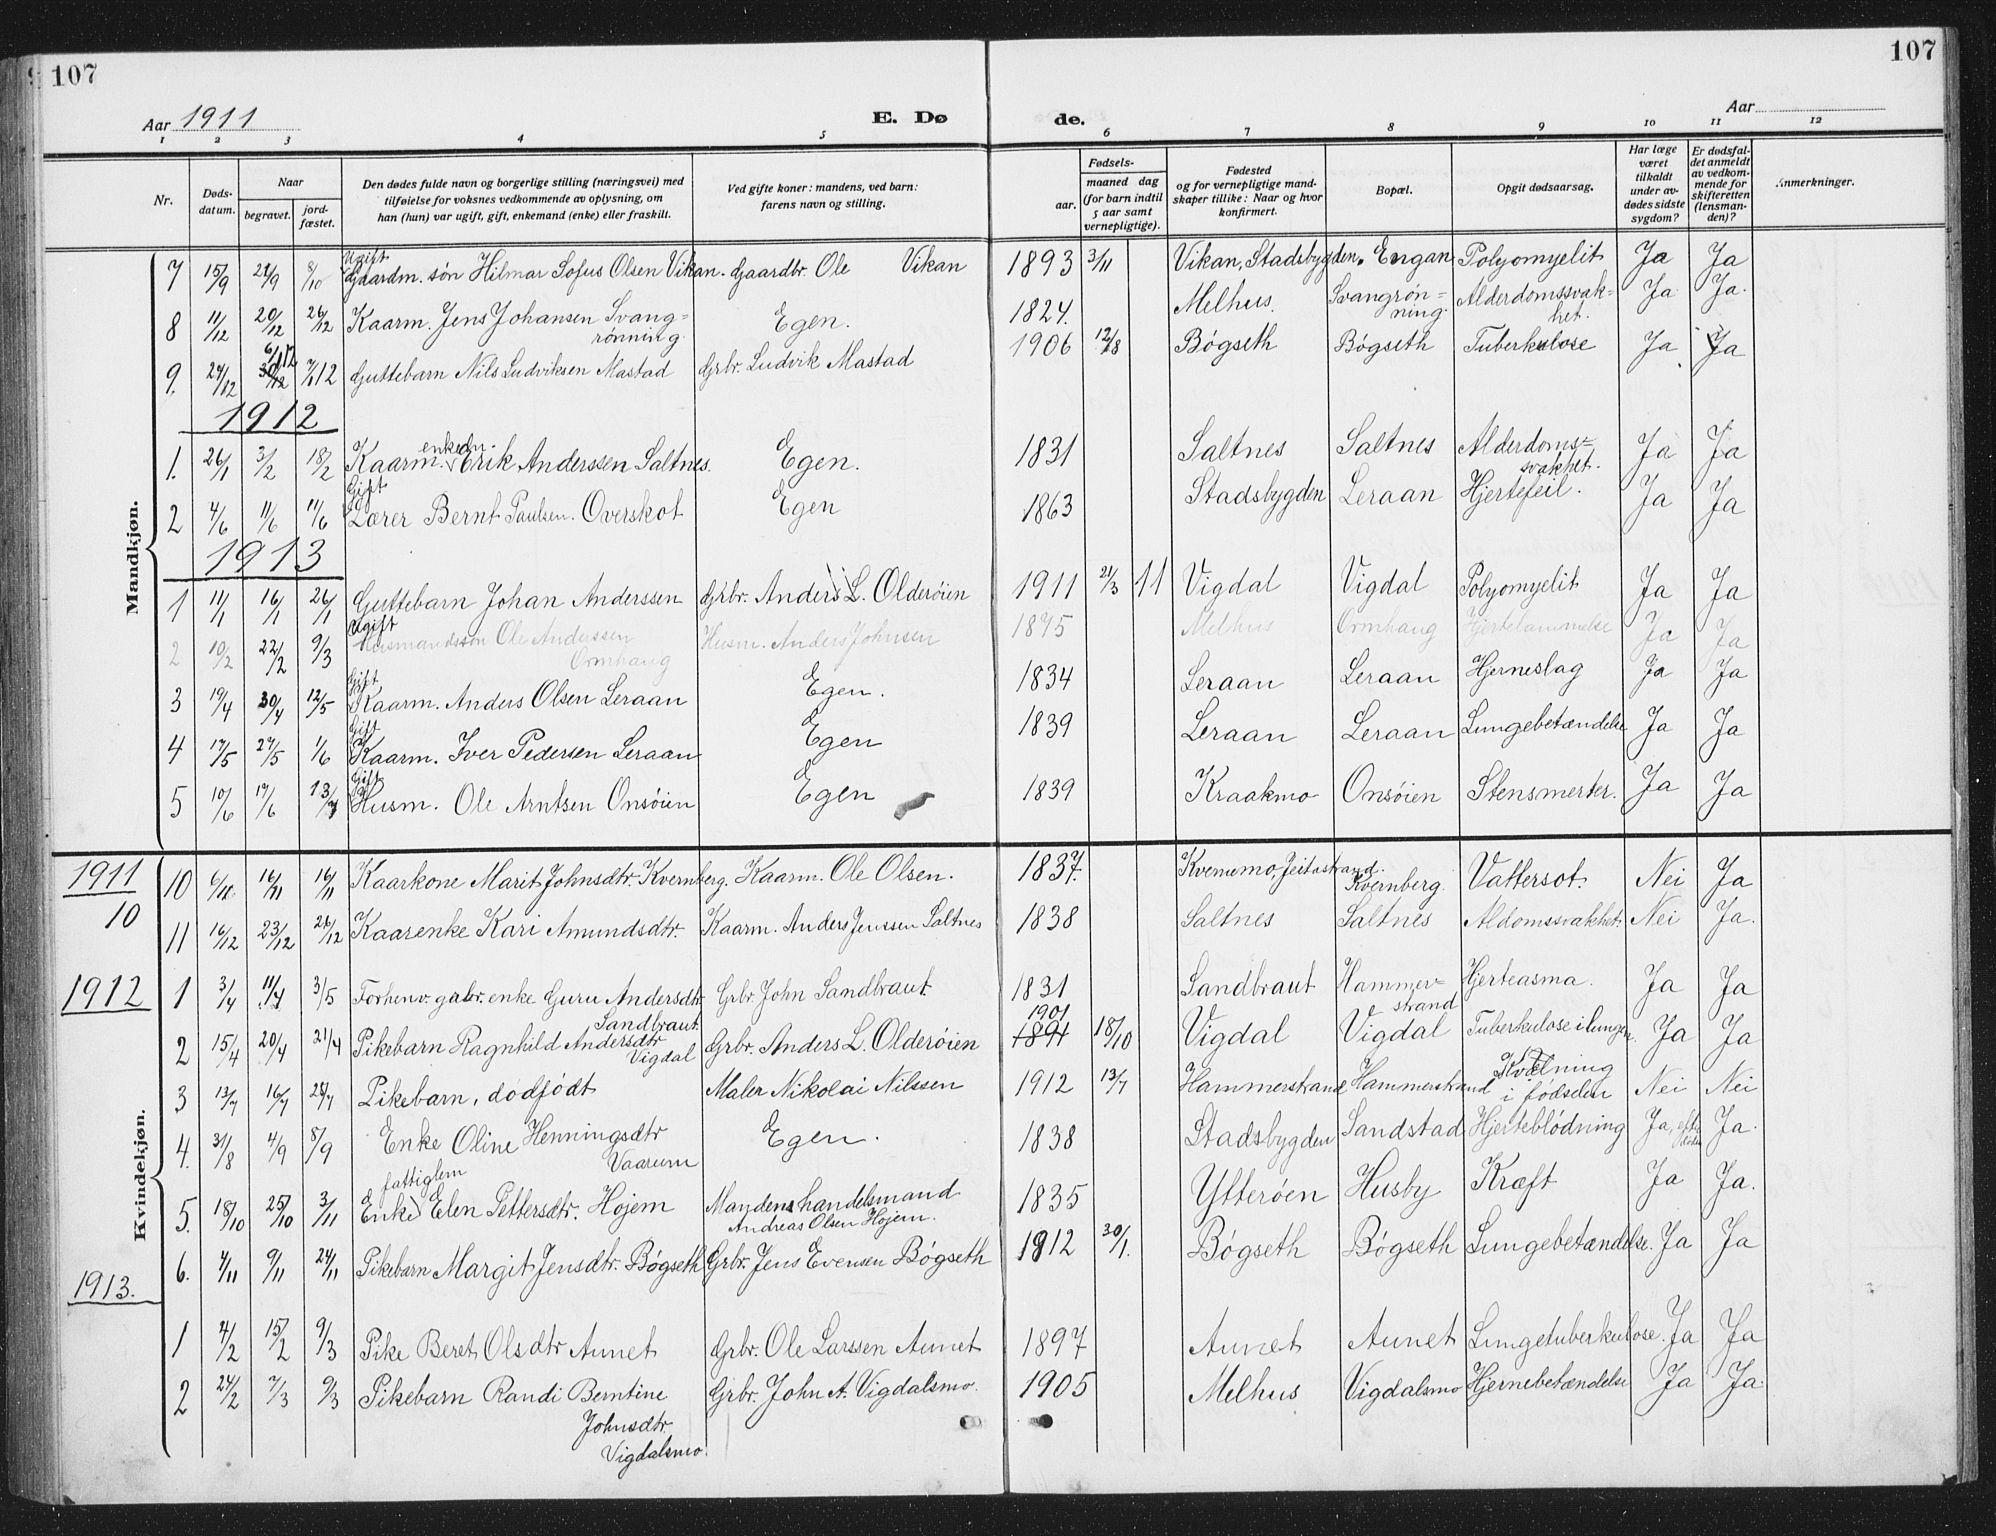 107
107
Aar 1911
E. Dø
de.
Aar
1 2 3 4 5 6 7 8 9 10 11 12
Nr.
Døds-datum.
Naar
begravet.
jord-fæstet.
Den dødes fulde navn og borgerlige stilling (næringsvei) med
tilføielse for voksnes vedkommende av oplysning, om
han (hun) var ugift, gift, enkemand (enke) eller fraskilt.
Ved gifte koner: mandens, ved barn:
farens navn og stilling.
Fødsels-
aar.
maaned dag
(for barn indtil
5 aar samt
vernepligtige).
Fødested
og for vernepligtige mand-
skaper tillike: Naar og hvor
konfirmert.
Bopæl.
Opgit dødsaarsag.
Har læge
været
tilkaldt
under av-
dødes sidste
sygdom?
Er dødsfal-
det anmeldt
av vedkom-
mende for
skifteretten
(lensman-
den)?
Anmerkninger.
Mandkjøn.
7 15/9 21/9 8/10 Ugift Gaardm. søn Hilmar Sofus Olsen Vikan. Gaardbr. Ole Vikan 1893 3/11 Vikan, Stadsbygden. Engan Polyomyelit Ja Ja
8 11/12 20/12 26/12 Kaarm. Jens Johansen Svang=rønning. Egen. 1824. Melhus. Svangrøn=ning. Alderdomssvak=het. Ja Ja.
9. 24/12 6/1 12 30/12 7/1 12 Guttebarn Nils Ludviksen Mastad Grbr. Ludvik Mastad 1906 12/8 Bøgseth Bøgseth Tuberkulose Ja Ja
1912
1. 26/1 3/2 18/2 Kaarm. enkem. Erik Anderssen Saltnes. Egen. 1831 Saltnes Saltnes Alderdoms=svakhet. Ja Ja
2 4/6 11/6 11/6 Gift Lærer Bernt Paulsen Overskot Egen 1863 Stadsbygden Leraan Hjertefeil. Ja Ja
1913
1 11/1 16/1 26/1 Guttebarn Johan Anderssen Grbr. Anders L. Olderøien 1911 21/3 11 Vigdal Vigdal Polyomyelit Ja Ja
2 10/2 22/2 9/3 Ugift Husmandssøn Ole Anderssen Ormhaug Husm. Anders Johnsen 1895 Melhus Ormhaug Hjertelammelse Ja Ja
3 19/4 30/4 12/5 Gift Kaarm. Anders Olsen Leraan Egen. 1834 Leraan Leraan Hjerneslag Ja Ja
4 17/5 27/5 1/6 Gift Kaarm. Iver Pedersen Leraan Egen 1839 Leraan Leraan Lungebetændelse Ja Ja
5 10/6 17/6 13/7 Gift Husm. Ole Arntsen Onsøien Egen 1839 Kraakmo Onsøien Stensmerter. Ja Ja
Kvindekjøn.
1911
10
10 6/11 16/11 16/11 Kaarkone Marit Johnsdtr. Kvernberg. Kaarm. Ole Olsen. 1837. Kvenemo, Jeitastrand. Kvernberg. Vattersot. Nei Ja
11 16/12 23/12 26/12 Kaarenke Kari Amundsdtr. Kaarm. Anders Jenssen Saltnes 1838 Saltnes Saltnes Aldomssvakhet. Nei Ja.
1912
1 3/4 11/4 3/5 Forhenv. gabr. enke Guru Andersdtr Sandbraut. Grbr. John Sandbraut 1831 Sandbraut Hammer=strand Hjerteasma. Ja Ja
2 15/4 20/4 21/4 Pikebarn Ragnhild Andersdtr Vigdal Grbr. Anders L. Olderøien 1901 1891 18/10 Vigdal Vigdal Tuberkulose i lungen. Ja Ja
3 13/7 16/7 28/7 Pikebarn, dødfødt Maler Nikolai Nilssen 1912 13/7 Hammerstrand Hammerstrand Kvælning i fødselen Nei Nei
4. 31/8 4/9 8/9 Enke Oline Henningsdtr Vaarum Egen. 1838 Stadsbygden Sandstad Hjerteblødning Ja, efter døden Ja.
5. 18/10 25/10 3/11 Enke fattiglem Elen Pettersdtr. Hojem Mandens handelsmand Andreas Olsen Hojem. 1835 Ytterøen Husby Kræft Ja Ja.
6. 4/11 9/11 24/11 Pikebarn Margit Jensdtr. Bøgseth Grbr. Jens Evensen Bøgseth 1912 30/1. Bøgseth Bøgseth Lungebetændelse. Ja Ja
1913.
1 4/2 15/2 9/3 Pike Beret Olsdtr Aunet Grbr. Ole Larssen Aunet 1897 Aunet Aunet Lungetuberkulose. Ja Ja
2 24/2 7/3 9/3 Pikebarn Randi Berntine Johnsdtr Vigdalsmo. Grbr. John A. Vigdalsmo. 1905 Melhus Vigdalsmo Hjernebetændelse Ja Ja.